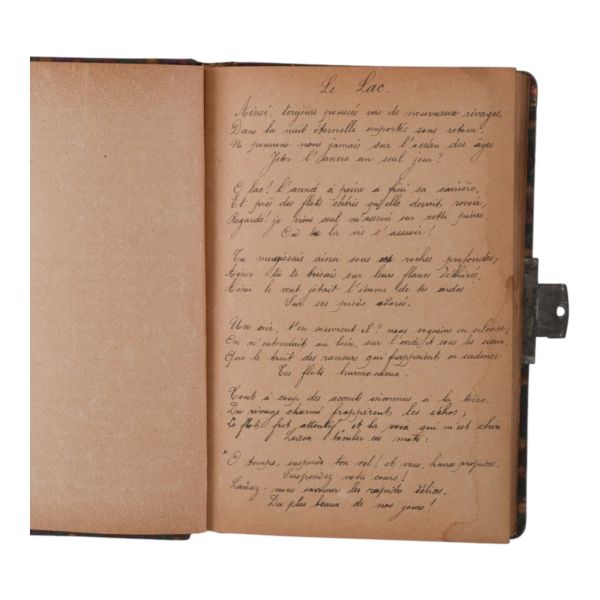 Le Lac.
Ainsi, toujours poussés vers de nouveaux rivages,
Dans la nuit éternelle emportés sans retour,
Ne pourrons-nous jamais sur l'océan des âges
Jeter l'ancre un seul jour ?
O lac ! l'année à peine a fini sa carrière,
Et près des flots chéris qu'elle devait revoir,
Regarde ! je viens seul m'asseoir sur cette pierre
Où tu la vis s'asseoir !
Tu mugissais ainsi sous ces roches profondes;
Ainsi tu te brisais sur leurs flancs déchirés;
Ainsi le vent jetait l'écume de tes ondes
Sur ses pieds adorés.
Un soir, t'en souvient il ? nous voguions en silence;
On n'entendait au loin, sur l'onde et sous les cieux,
Que le bruit des rameurs qui frappaient en cadence
Tes flots harmonieux.
Tout à coup des accents inconnus à la terre
Du rivage charmé frappèrent les échos;
Le flot fut attentif et la voix qui m'est chère
Laissa tomber ces mots :
"O temps, suspends ton vol ! et vous, heures propices,
Suspendez votre cours !
Laissez-nous savourer les rapides délices
Des plus beaux de nos jours !